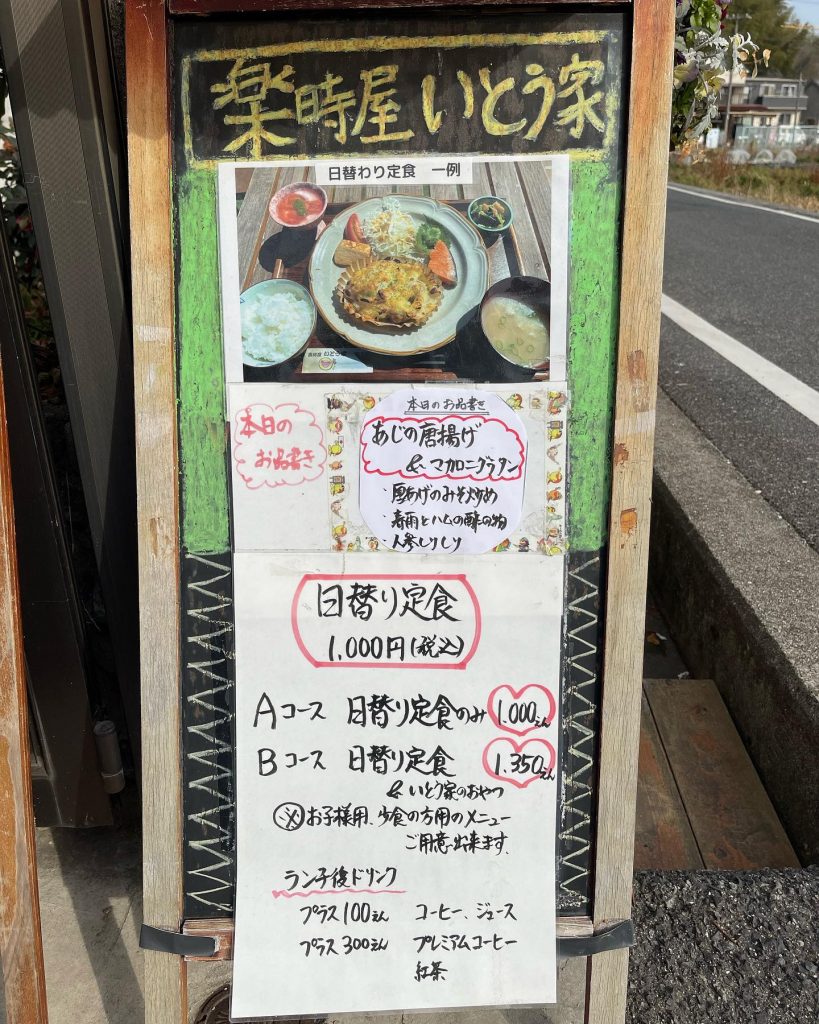 楽時屋 いとう家
日替わり定食 一例
本日の
お品書き
本日のお品書き
あじの唐揚げ
& マカロニグラタン
・厚あげのみそ炒め
・春雨とハムの酢の物
・人参しりしり
日替り定食
1,000円(税込)
Aコース 日替り定食のみ 1.000えん
Bコース 日替り定食 1.350えん
& いとう家のおやつ
※お子様用、少食の方用のメニュー
ご用意出来ます。
ランチ後ドリンク
プラス100えん コーヒー、ジュース
プラス300えん プレミアムコーヒー
紅茶